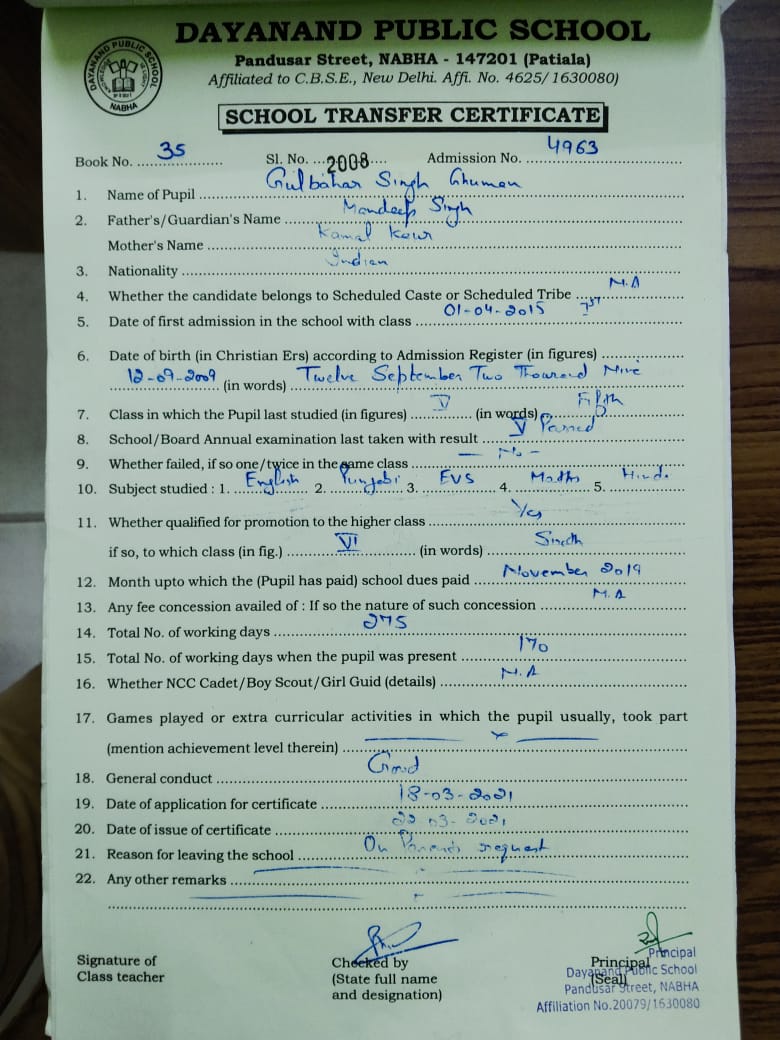 DAYANAND PUBLIC SCHOOL
Pandusar Street, NABHA - 147201 (Patiala)
Affiliated to C.B.S.E., New Delhi. Affi. No. 4625/ 1630080)
DAYANAND PUBLIC SCHOOL
NABHA
SCHOOL TRANSFER CERTIFICATE
Book No. 35 Sl. No. 2008 Admission No. 4963
1. Name of Pupil Gulbahar Singh Ghuman
2. Father's/Guardian's Name Mandeep Singh
Mother's Name Kamal Kaur
3. Nationality Indian
4. Whether the candidate belongs to Scheduled Caste or Scheduled Tribe N.A
5. Date of first admission in the school with class 01-04-2015 1st
6. Date of birth (in Christian Ers) according to Admission Register (in figures)
12-09-2009 (in words) Twelve September Two Thousand Nine
7. Class in which the Pupil last studied (in figures) V (in words) Fifth
8. School/Board Annual examination last taken with result V Passed
9. Whether failed, if so one/twice in the same class - No -
10. Subject studied : 1. English 2. Punjabi 3. EVS 4. Maths 5. Hindi
11. Whether qualified for promotion to the higher class Yes
if so, to which class (in fig.) VI (in words) Sixth
12. Month upto which the (Pupil has paid) school dues paid November 2019
13. Any fee concession availed of : If so the nature of such concession N.A
14. Total No. of working days 275
15. Total No. of working days when the pupil was present 170
16. Whether NCC Cadet/Boy Scout/Girl Guid (details) N.A
17. Games played or extra curricular activities in which the pupil usually, took part
(mention achievement level therein)
18. General conduct Good
19. Date of application for certificate 18-03-2021
20. Date of issue of certificate 22-03-2021
21. Reason for leaving the school On Parents request
22. Any other remarks
Signature of
Class teacher
Checked by
(State full name
and designation)
Principal
(Seal)
Principal
Dayanand Public School
Pandusar Street, NABHA
Affiliation No.20079/1630080